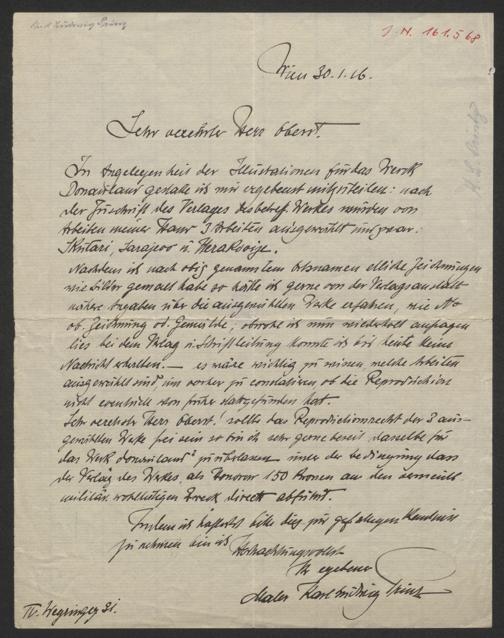 Karl Ludwig Prinz
I. N. 161.568
Wien 30.1.16.
Sehr verehrter Herr Oberst.
In Angelegenheit der Illustrationen für das Werk
Donauland gestatte ich mir ergebenst mitzuteilen: nach
der Zuschrift des Verlages des betref. Werkes wurden von
Arbeiten meiner Hand 3 Arbeiten ausgewählt und zwar:
Skutari, Sarajevo u.
Nachdem ich nach obig genannten Ortsnamen etliche Zeichnungen
wie Bilder gemalt habe so hätte ich gerne von der Verlagsanstalt
nähere Angaben über die ausgewählten Werke erfahren, wie No
ob Zeichnung od. Gemälde, obwohl ich nun wiederholt anfragen
liess bei dem Verlag u. Schriftleitung konnte ich bis heute keine
Nachricht erhalten. — es wäre wichtig zu wissen welche Arbeiten
ausgewählt sind um vorher zu constatieren ob die Reproduction
nicht eventuell von früher stattgefunden hat.
Sehr verehrter Herr Oberst! sollte das Reproductionsrecht der 3 aus-
gewählten Werke frei sein so bin ich sehr gerne bereit, dasselbe für
das Werk "Donauland" zu überlassen unter der Bedingung dass
der Verlag des Werkes, als Honorar 150 Kronen an den
militär. wohltätigen Zweck direct abführt.
Indem ich höflichst bitte dies zur gefälligen Kenntnis
zu nehmen bin ich Hochachtungsvollst
Ihr ergebener
Maler Karl Ludwig Prinz
IV. Weyringerg 31.
K. L. Prinz